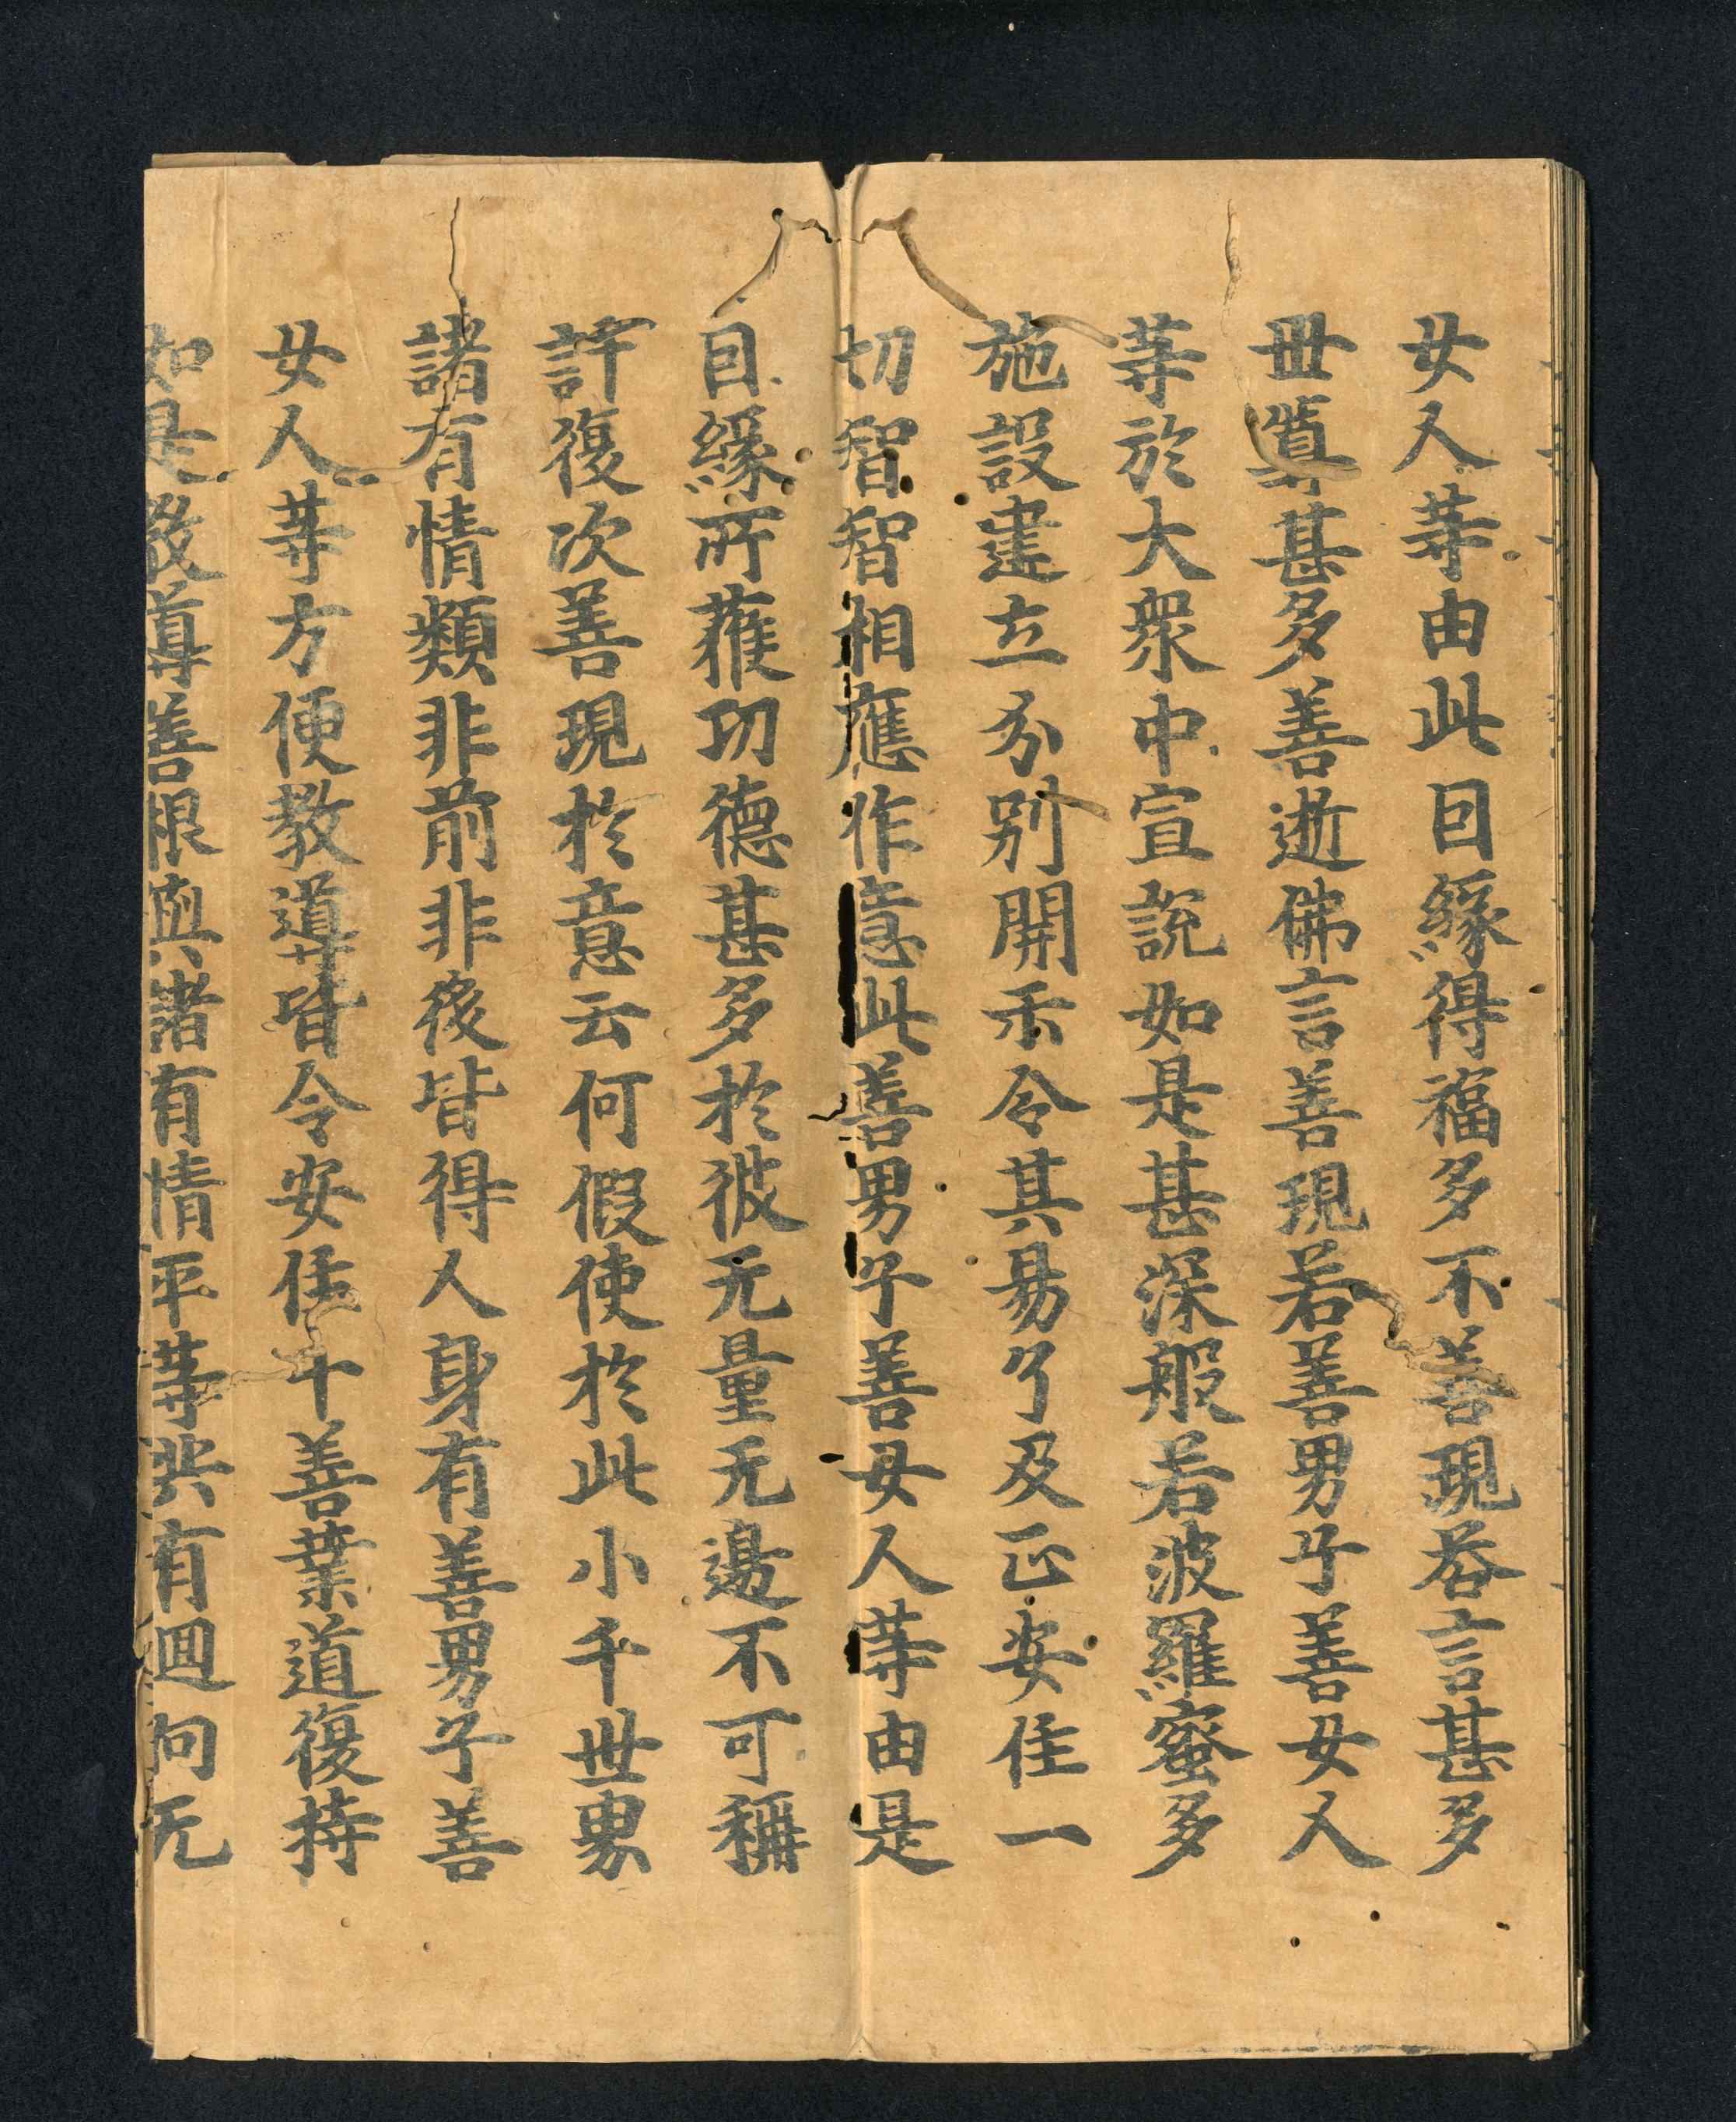 女人等由此因緣得福多不善現荅言甚多
世尊甚多善逝佛言善現若善男子善女人
等於大衆中宣說如是甚深般若波羅蜜多
施設建立分別開示令其易了及正安住一
切智智相應作意此善男子善女人等由是
因緣所獲功德甚多於彼无量无邊不可稱
計復次善現於意云何假使於此小千世界
諸有情類非前非後皆得人身有善男子善
女人等方便教導皆令安住十善業道復持
如是教導善根與諸有情平等共有迴向无